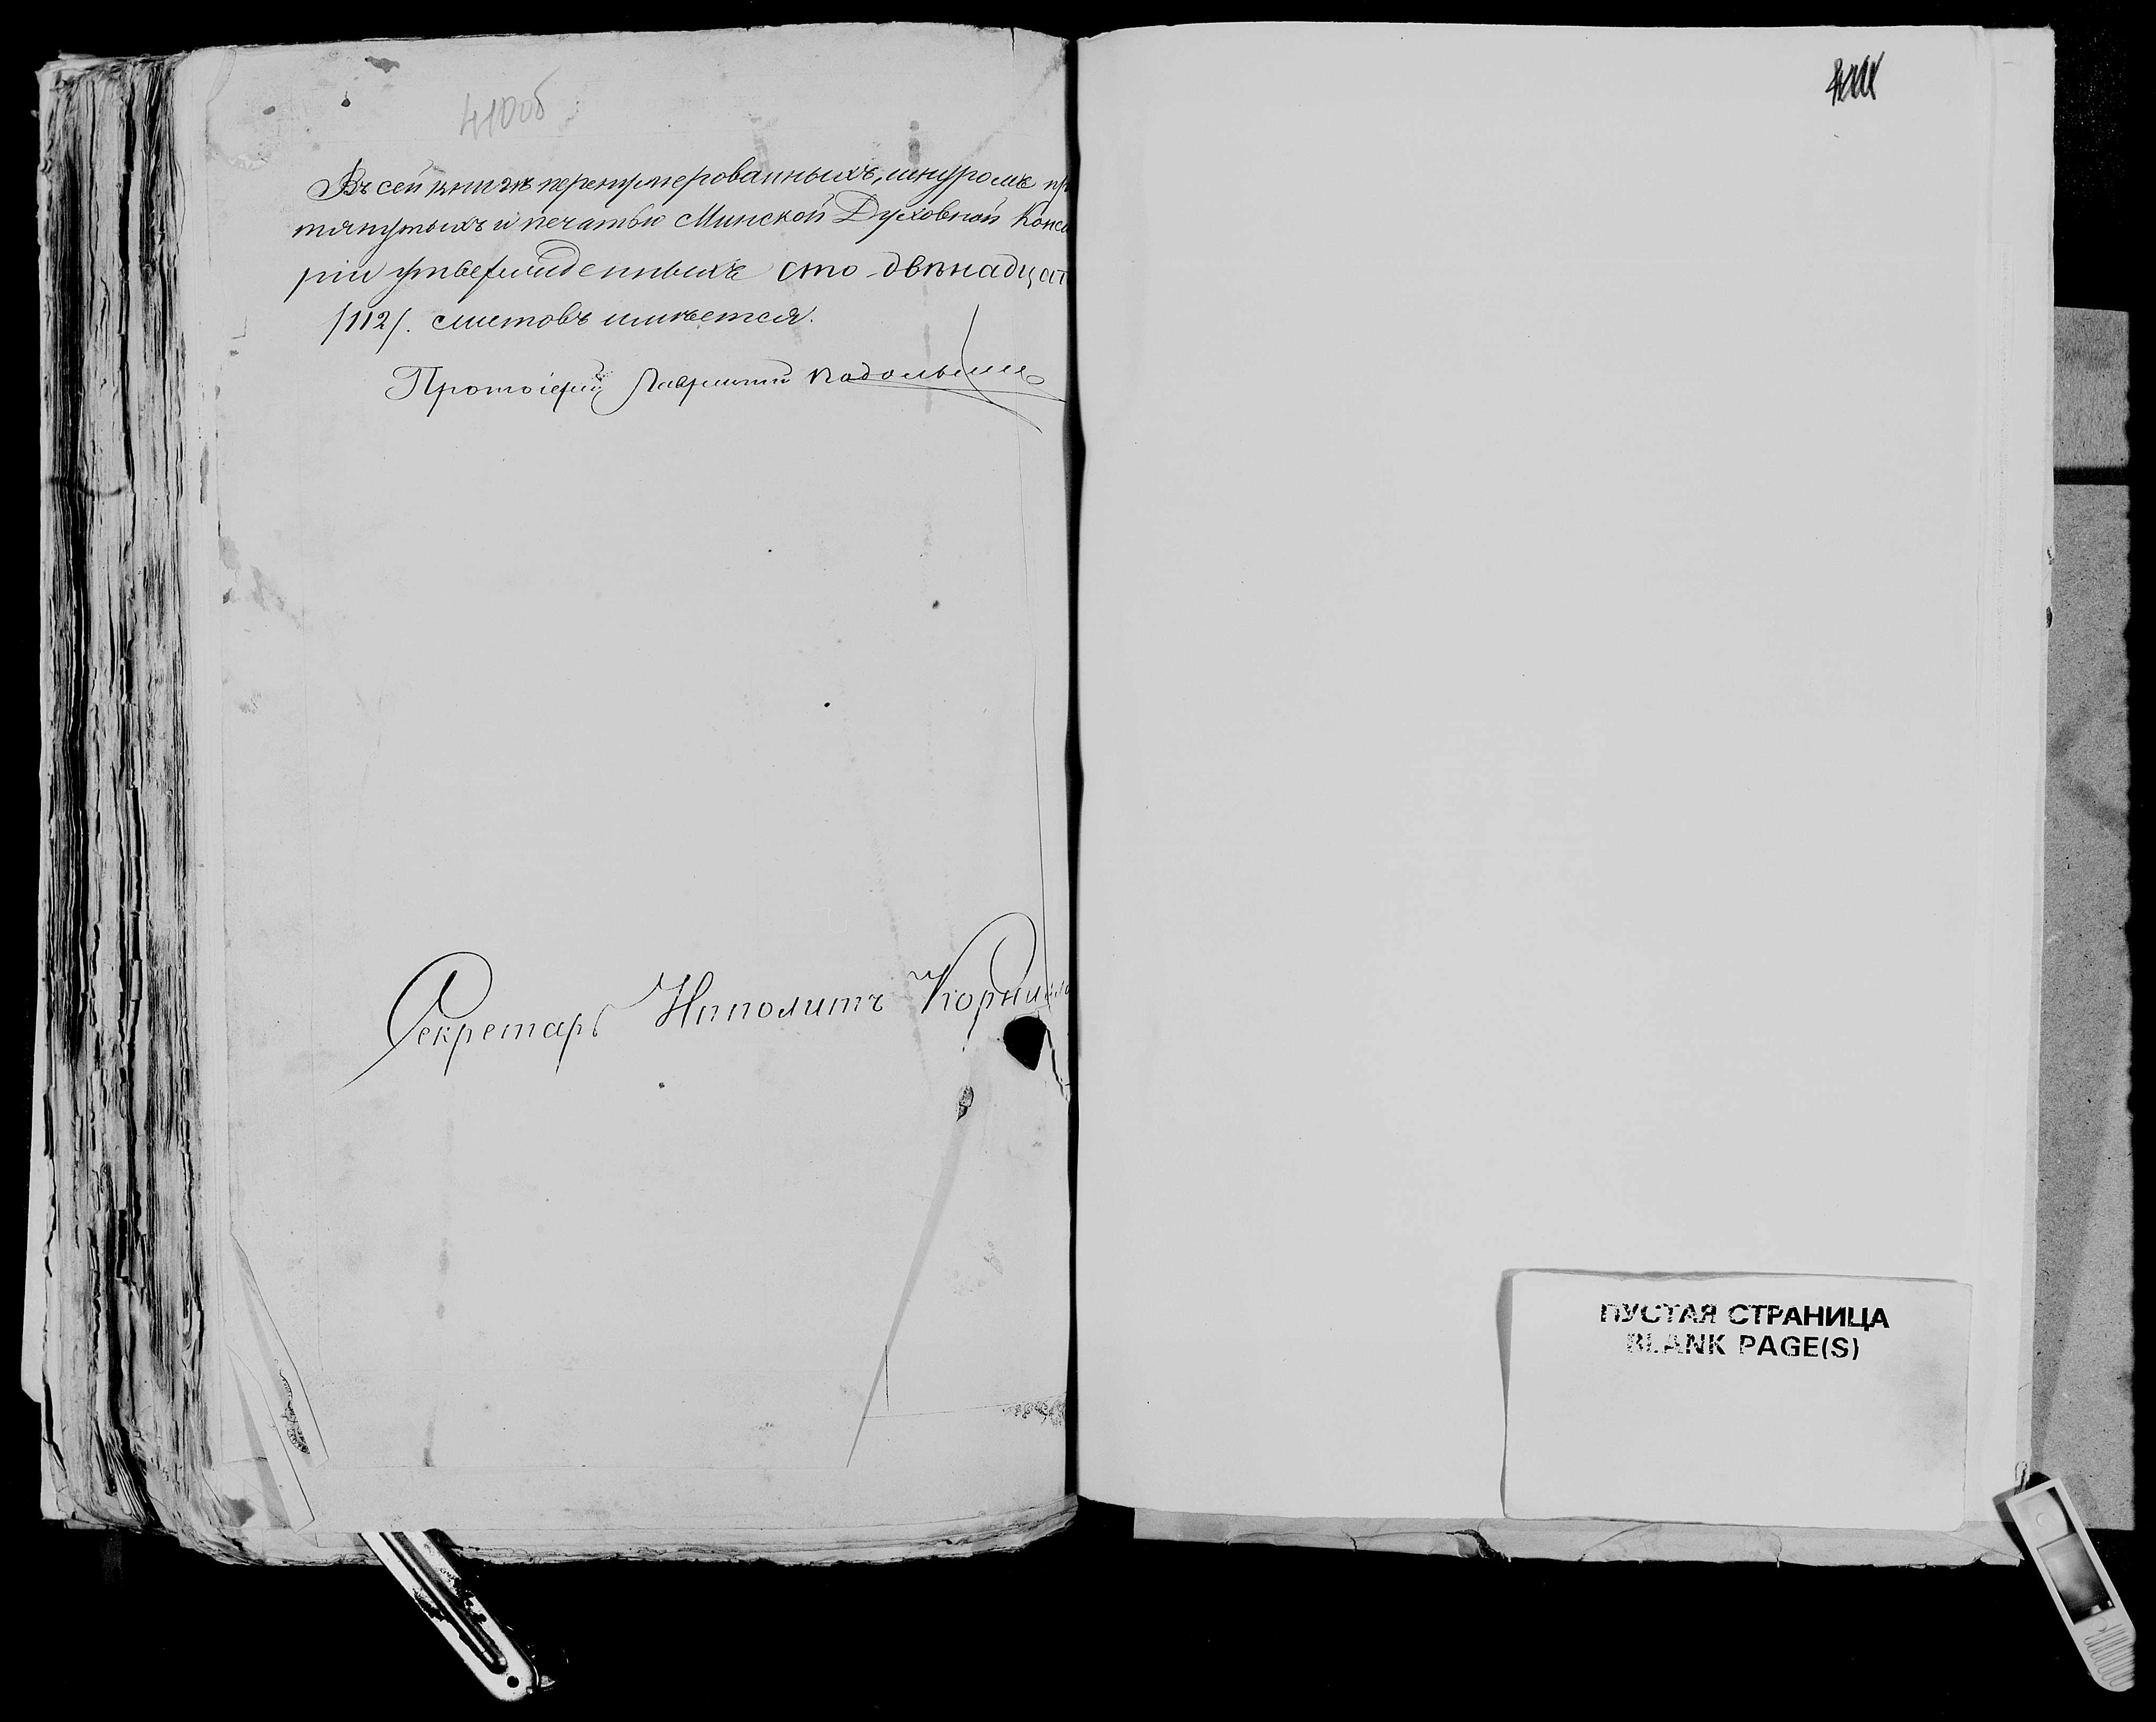 410об
Въ сей книгѣ перенумерованныхъ, шнуромъ пр
тянутыхъ и печатью Минской Духовной Конси
ріи утвержденныхъ сто двѣнадцат
/112/. листовъ имѣется.
Протоіерей Лаврентій Подольск
Секретарь Ипполитъ Корнил
ПУСТАЯ СТРАНИЦА
BLANK PAGE(S)